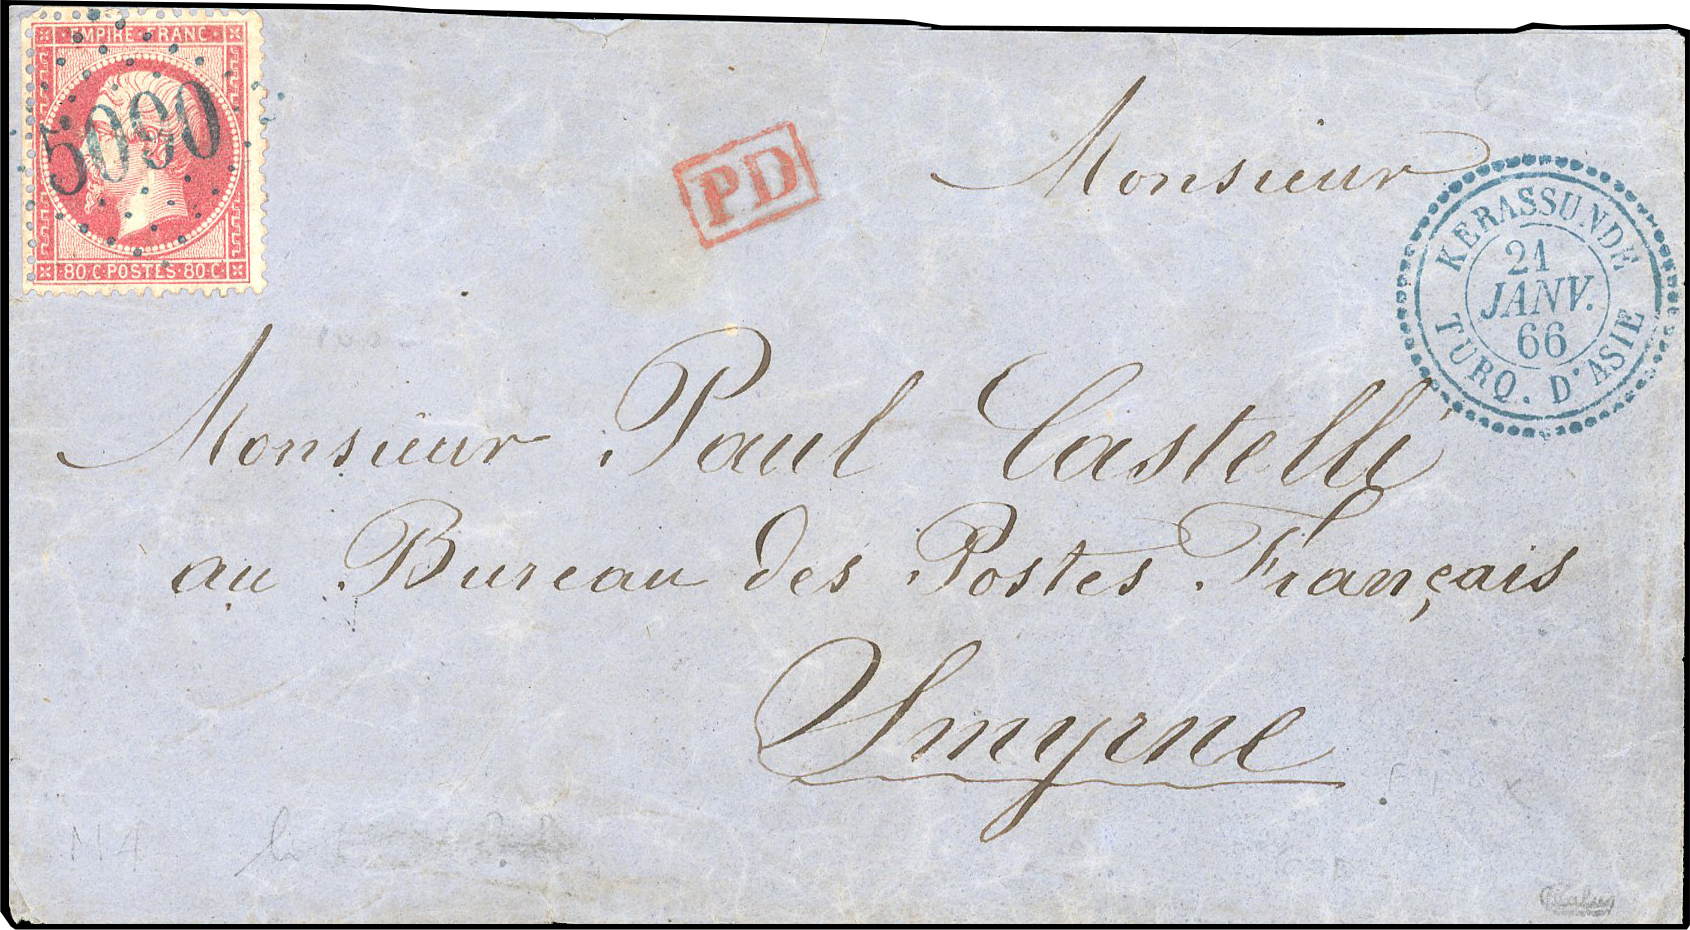 EMPIRE FRANC
5090
80·C·POSTES·80·C
PD
KERASSUNDE
21
JANV.
66
TURQ. D'ASIE
Monsieur
Monsieur Paul Castelli
au Bureau des Postes Français
Smyrne